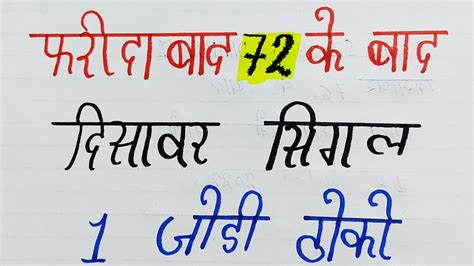 फरीदाबाद 72 के बाद
दिसावर सिगल
1 जोडी ठोको